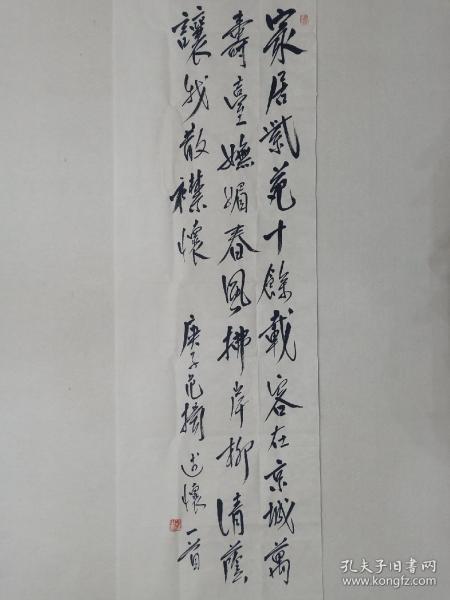 家居紫苑十餘載容在京城萬
壽臺嫵媚春風拂岸柳清蔭
讓我散襟懷
庚子范摘述懷一首
孔夫子旧书网
www.kongfz.com